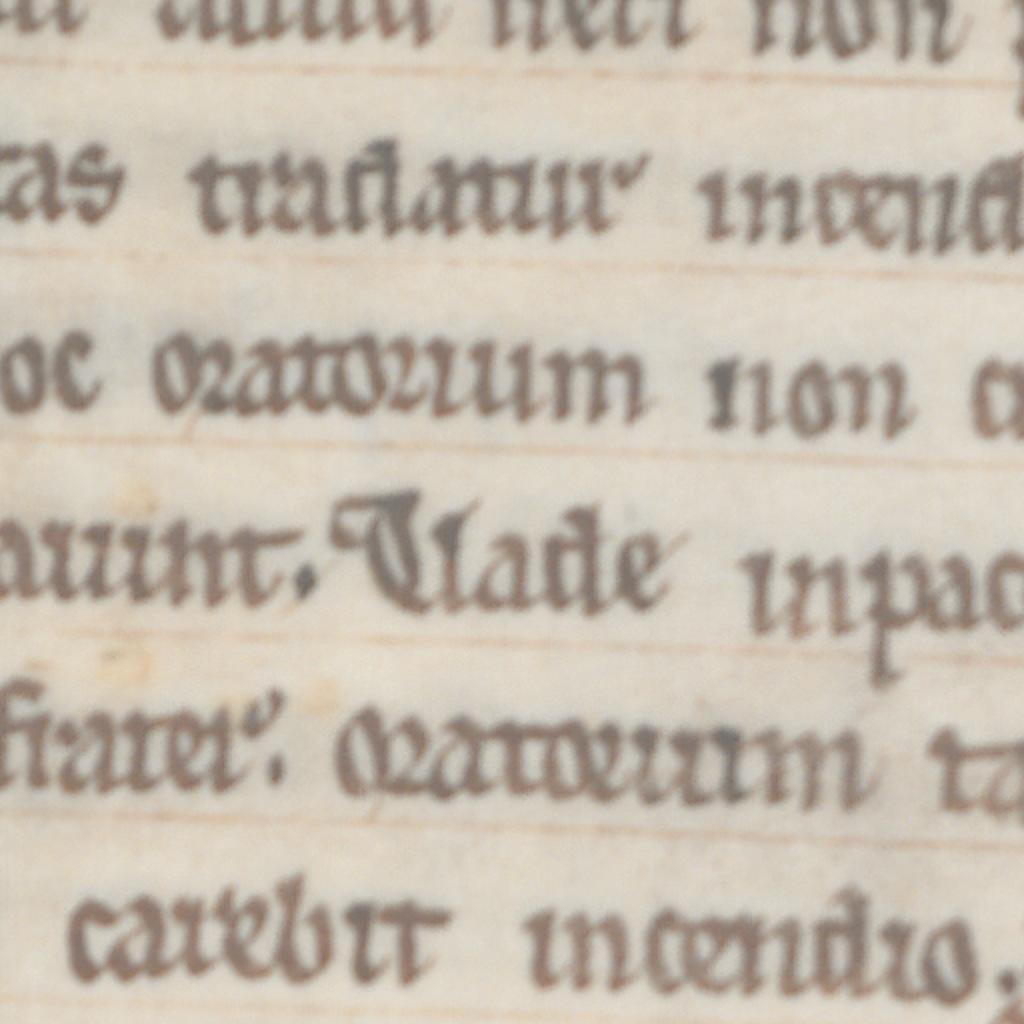 neci non
tas traflatur incendi
oc oratorium non
auunt. Vade inpac
frater. oratorium ta
carebit incendio.